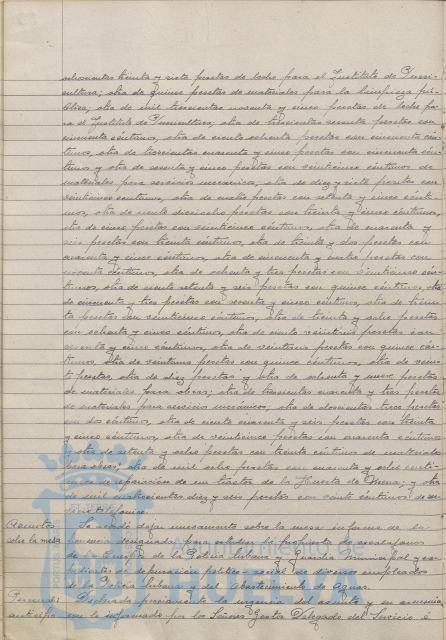 ochocientas treinta y siete pesetas de leche para el Instituto de Pueri-
cultura; otra de quince pesetas de materiales para la limpieza pú-
blica; otra de mil trescientas noventa y cinco pesetas de leche pa-
ra el Instituto de Puericultura; otra de trescientas sesenta pesetas con
cincuenta céntimos, otra de ciento ochenta pesetas con cincuenta cén-
timos, otra de trescientas cuarenta y cinco pesetas con cincuenta cén-
timos y otra de sesenta y cinco pesetas con veinticinco céntimos de
materiales para servicios mecánicos; otra de diez y siete pesetas con
veinticinco céntimos, otra de cuatro pesetas con setenta y cinco cénti-
mos, otra de ciento dieciocho pesetas con treinta y cinco céntimos,
otra de cinco pesetas con veinticinco céntimos, otra de cuarenta y
seis pesetas con treinta céntimos, otra de treinta y dos pesetas con
cuarenta y cinco céntimos, otra de cincuenta y cuatro pesetas con
céntimos, otra de ochenta y tres pesetas con veinticinco cén-
timos, otra de ciento setenta y seis pesetas con quince céntimos, otra
de cincuenta y tres pesetas con sesenta y cinco céntimos, otra de trein-
ta pesetas con veinticinco céntimos, otra de treinta y ocho pesetas
con ochenta y cinco céntimos, otra de ciento veintiseis pesetas con
sesenta y cinco céntimos, otra de veintiseis pesetas con quince cén-
timos, otra de veintiuna pesetas con quince céntimos, otra de vein-
te pesetas, otra de diez pesetas y otra de ochenta y nueve pesetas
de materiales para obras; otra de trescientas cuarenta y tres pesetas
de materiales para servicio mecánicos; otra de doscientas trece pesetas
con dos céntimos, otra de ciento cuarenta y seis pesetas con treinta
y cinco céntimos, otra de veinticinco pesetas con cuarenta céntimos
y otra de setenta y ocho pesetas con treinta céntimos de materiales
para obras; otra de mil ocho pesetas con cuarenta y ocho cénti-
mos de reparación de un tractor de la Huerta de Mena; y otra
de mil cuatrocientas diez y seis pesetas con veinte céntimos de ser-
vicio telefónico.
Asuntos Se acordó dejar nuevamente sobre la mesa informe de la
sobre la mesa Ponencia designada para estudiar la propuesta de escalafones
de la Guardia de la Policía Urbana y Guardia municipal y ex-
pedientes de depuración político social de diversos empleados
de la Policía Urbana y del Abastecimiento de Aguas.
Personal: Declarada previamente la urgencia del asunto y en armonía
anticipo con lo informado por los Señores Gestor Delegado del Servicio é